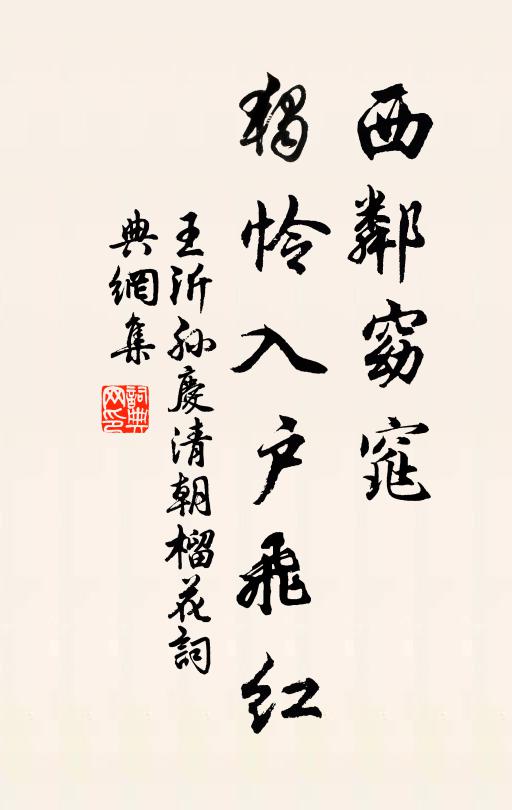 西鄰窈窕
獨憐入戶飛紅
王沂孫慶清朝榴花詞
典網集
詞典網印